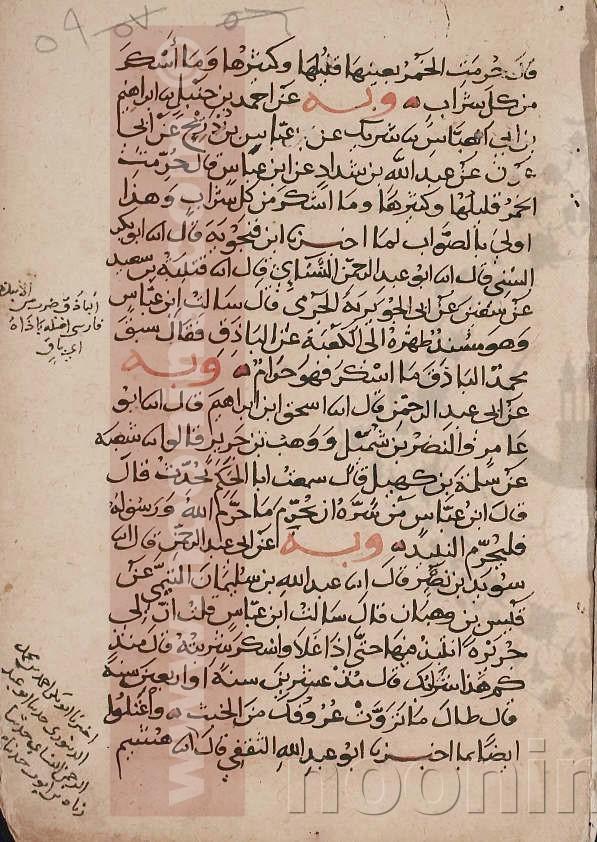 قال حرمت الخمر بعينها قليلها وكثيرها وما أسكر
من كل شراب وبه عن احمد بن حنبل بن ابراهيم
بن ابي العباس نا شريك عن عباس بن ذريح عن ابي
عون عن عبد الله بن شداد عن ابن عباس قال حرمت
الخمر قليلها وكثيرها وما اسكر من كل شراب وهذا
اولى بالصواب لما اخبرنا ابن فنجويه قال انا ابو بكر
السني قال انا ابو عبد الرحمن النسائي قال انا قتيبة بن سعيد
عن سفين عن ابي الجويرية الجرمي قال سالت ابن عباس
وهو مسند ظهره الى الكعبة عن الباذق فقال سبق
محمد الباذق ما اسكر فهو حرام وبه
عن ابي عبد الرحمن قال انا اسحق ابن ابراهيم قال انا ابو
عامر والنضر بن شميل ووهب بن جرير قالوا نا شعبة
عن سلمة بن كهيل قال سمعت ابا الحكم يحدث قال
قال ابن عباس من سره ان يحرم ما حرم الله ورسوله
فليحرم النبيذ وبه عن ابي عبد الرحمن قال انا
سويد بن نصر قال انا عبد الله بن سليمان التيمي عن
قيس بن وهبان قال سالت ابن عباس قلت ان لي
جريرة انتبذ فيها حتى اذا غلا واسكر شربته قال منذ
كم هذا شرابك قال منذ عشرين سنة او اربعين سنة
قال طال ما تروت عروقك من الخبث واعتلوا
ايضا بما اخبرنا ابو عبد الله الثقفي قال انا
الباذق
فارسي اصله باذاه
اي باق
اخبرنا
الدينوري
الرحمن النسائي حدثنا
زياد بن ايوب حدثنا
www
noonin